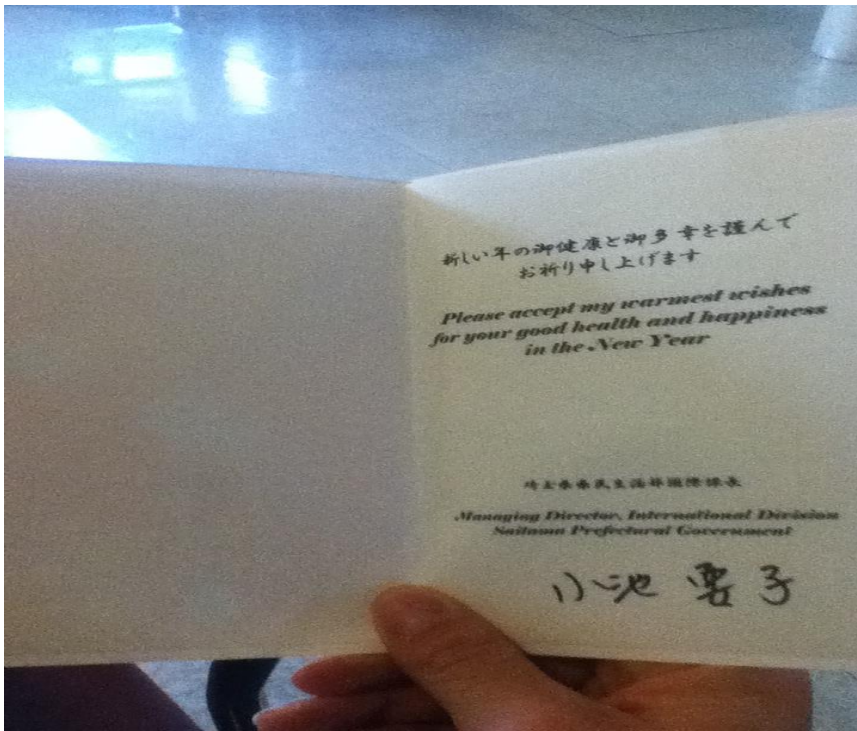 新しい年の御健康と御多幸を謹んで
お祈り申し上げます
Please accept my warmest wishes
for your good health and happiness
in the New Year
埼玉県県民生活部国際課長
Managing Director, International Division
Saitama Prefectural Government
小池 要子